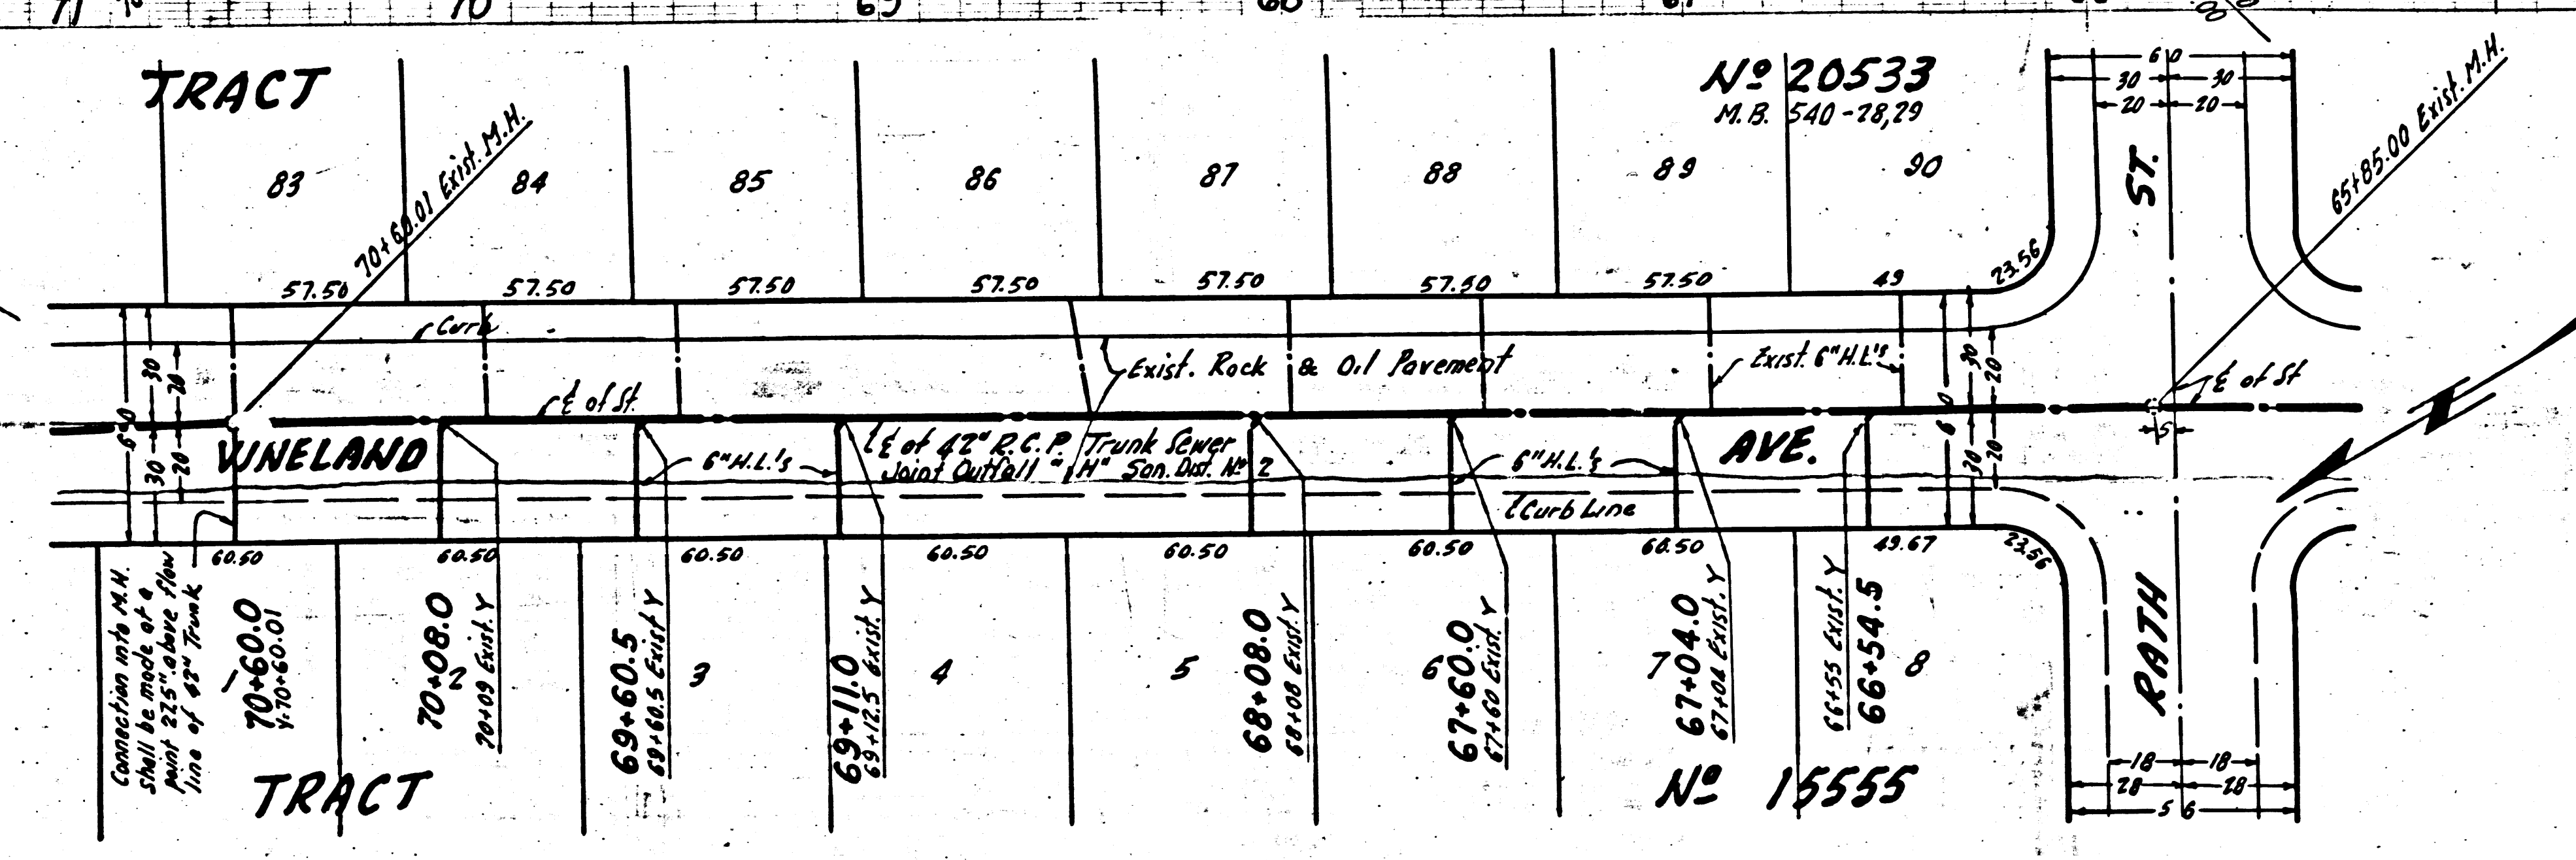 70
TRACT
Nº 20533
M.B. 540-28,29
83
84
85
86
87
88
89
90
70+60.01 Exist. M.H.
65+85.00 Exist. M.H.
60
30 30
20 20
ST.
57.50
57.50
57.50
57.50
57.50
57.50
57.50
49
23.56
Curb
Exist. Rock & Oil Pavement
Exist. 6" H.L.'s
℄ of St.
℄ of St
60
30
20
30
20
60
30
20
30
20
5
VINELAND
AVE.
℄ of 42" R.C.P. Trunk Sewer
Joint Outfall "H" San. Dist. Nº 2
6" H.L.'s
6" H.L.'s
Curb Line
60.50
60.50
60.50
60.50
60.50
60.50
60.50
49.67
23.56
Connection into M.H.
shall be made at a
point 22.5" above flow
line of 42" Trunk
70+60.0
Y-70+60.01
70+08.0
2
70+09 Exist. Y
69+60.5
69+60.5 Exist Y
3
69+11.0
69+12.5 Exist. Y
4
5
68+08.0
68+08 Exist. Y
6
67+60.0
67+60 Exist. Y
7
67+04.0
67+04 Exist. Y
66+55 Exist. Y
66+54.5
8
RATH
TRACT
Nº 15555
18 18
28 28
56